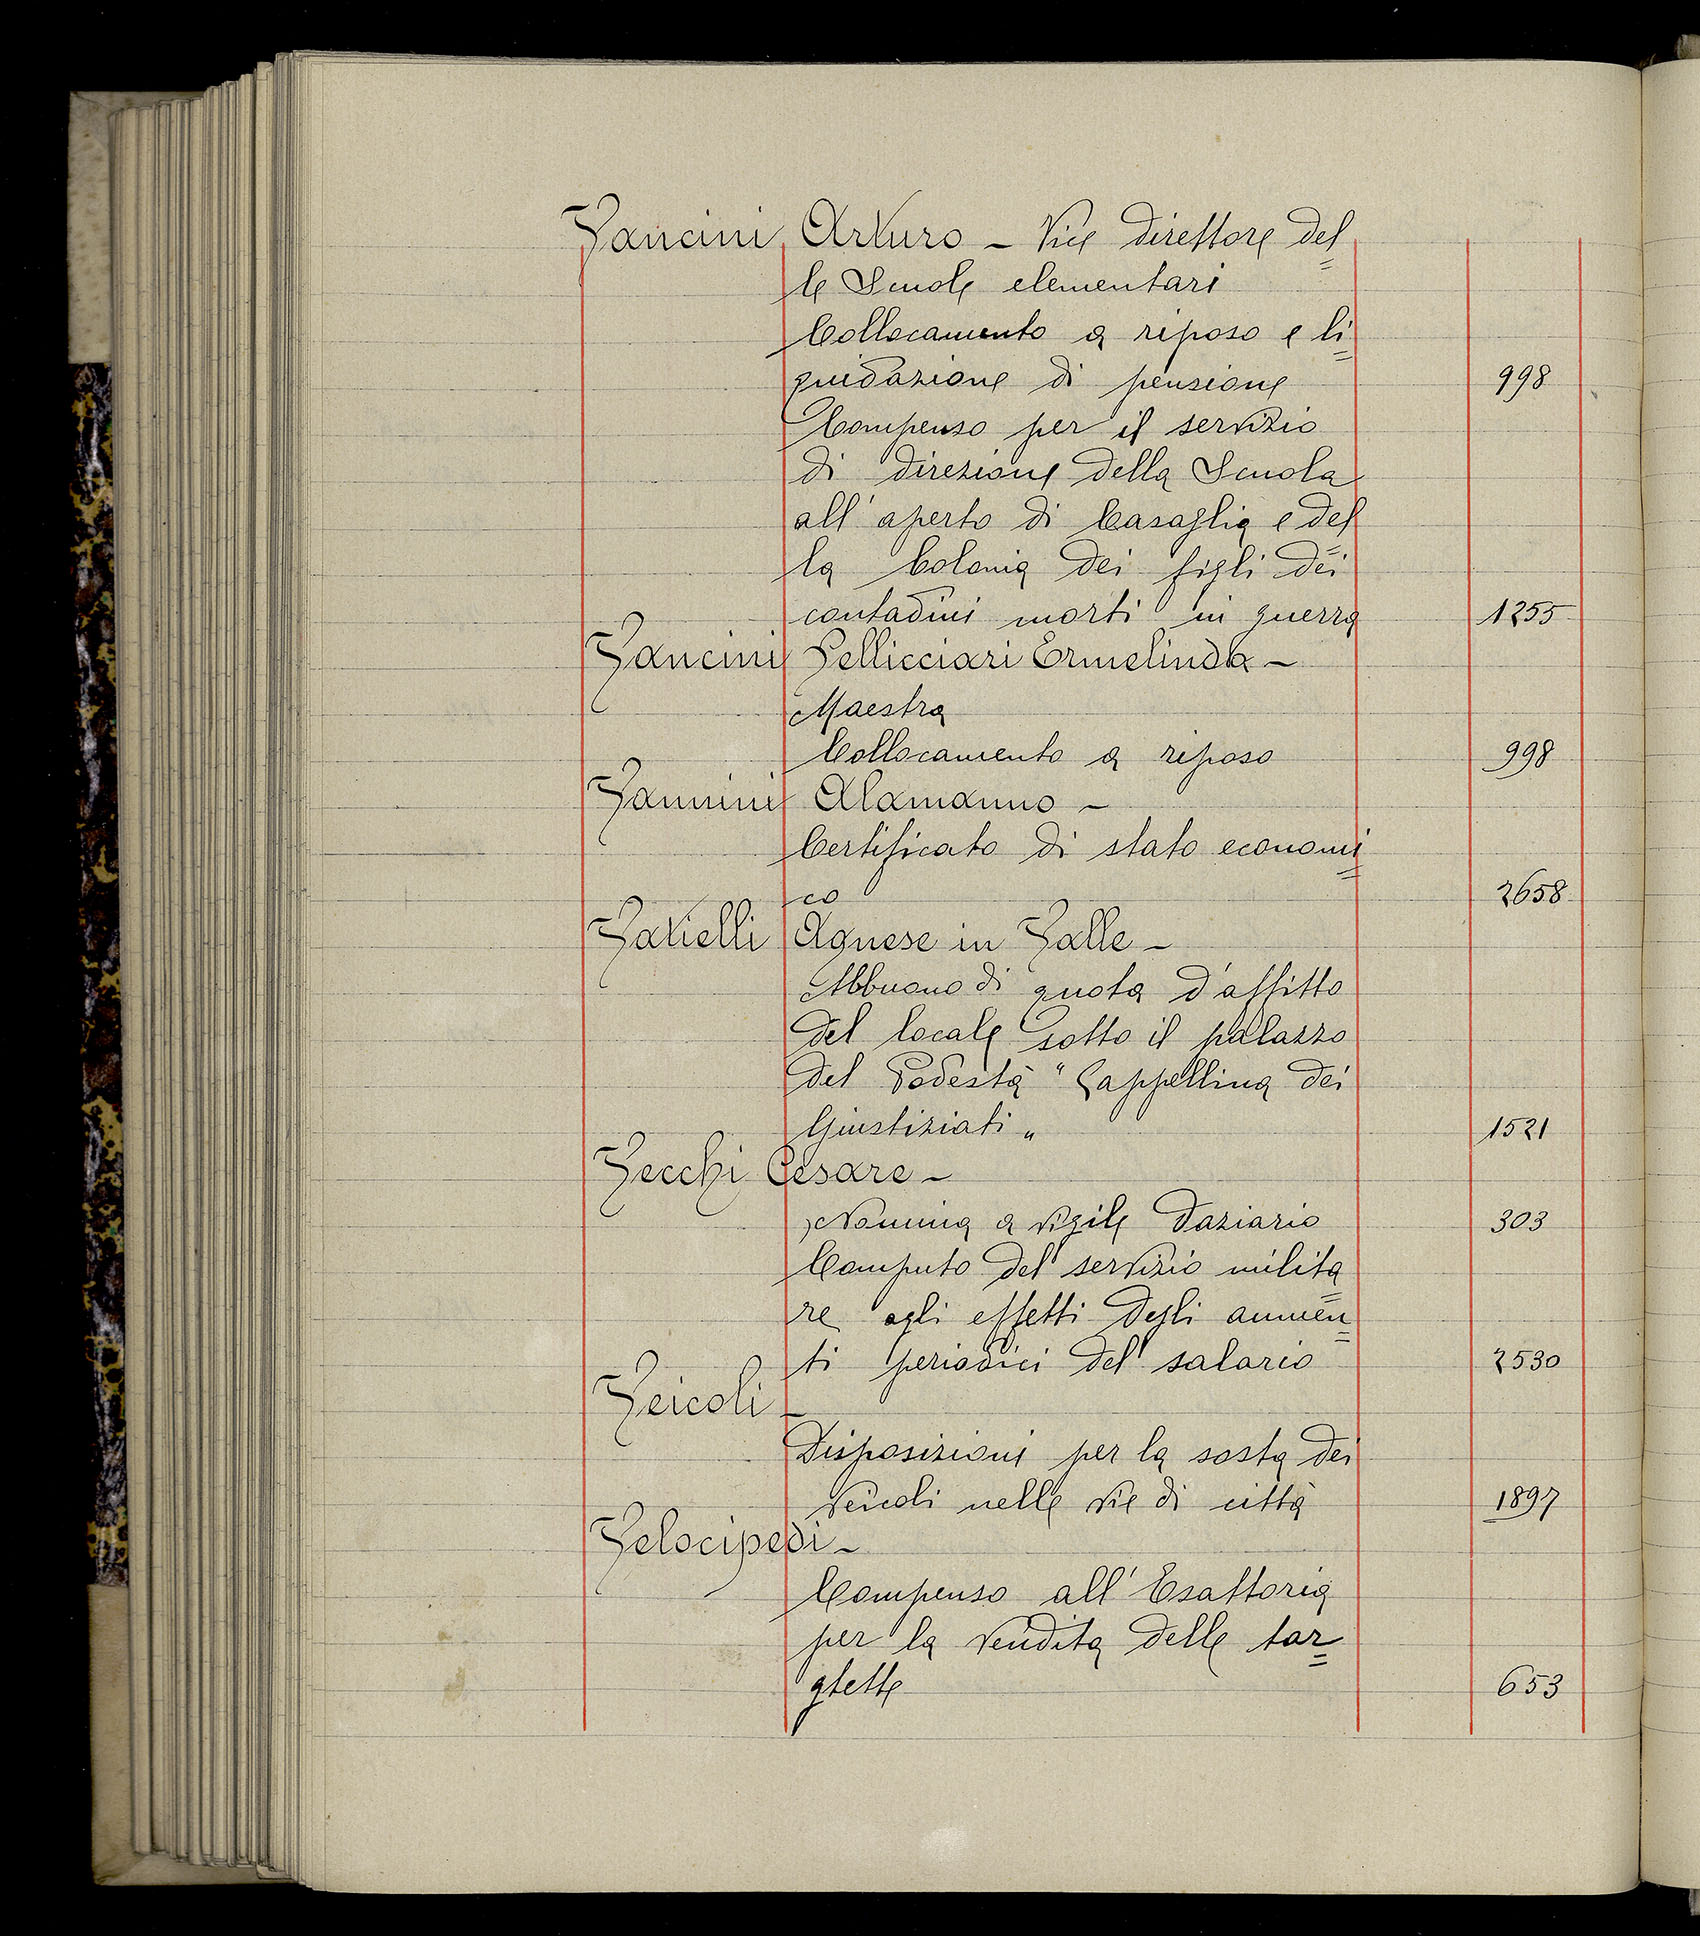 Vancini Arturo - Vice direttore del=
le Scuole elementari
Collocamento a riposo e li=
quidazione di pensione 998
Compenso per il servizio
di direzione della Scuola
all'aperto di Casaglia e del=
la Colonia dei figli dei
contadini morti in guerra 1255
Vancini Pellicciari Ermelinda -
Maestra
Collocamento a riposo 998
Vannini Alamanno -
Certificato di stato economi=
co 2658
Vatielli Agnese in Valle -
Abbuono di quota d'affitto
del locale sotto il palazzo
del Podestà "Cappellina dei
Giustiziati" 1521
Vecchi Cesare -
Nomina a vigile daziario 303
Computo del servizio milita=
re agli effetti degli aumen=
ti periodici del salario 2530
Veicoli -
Disposizioni per la sosta dei
veicoli nelle vie di città 1897
Velocipedi -
Compenso all'Esattoria
per la vendita delle tar=
ghette 653